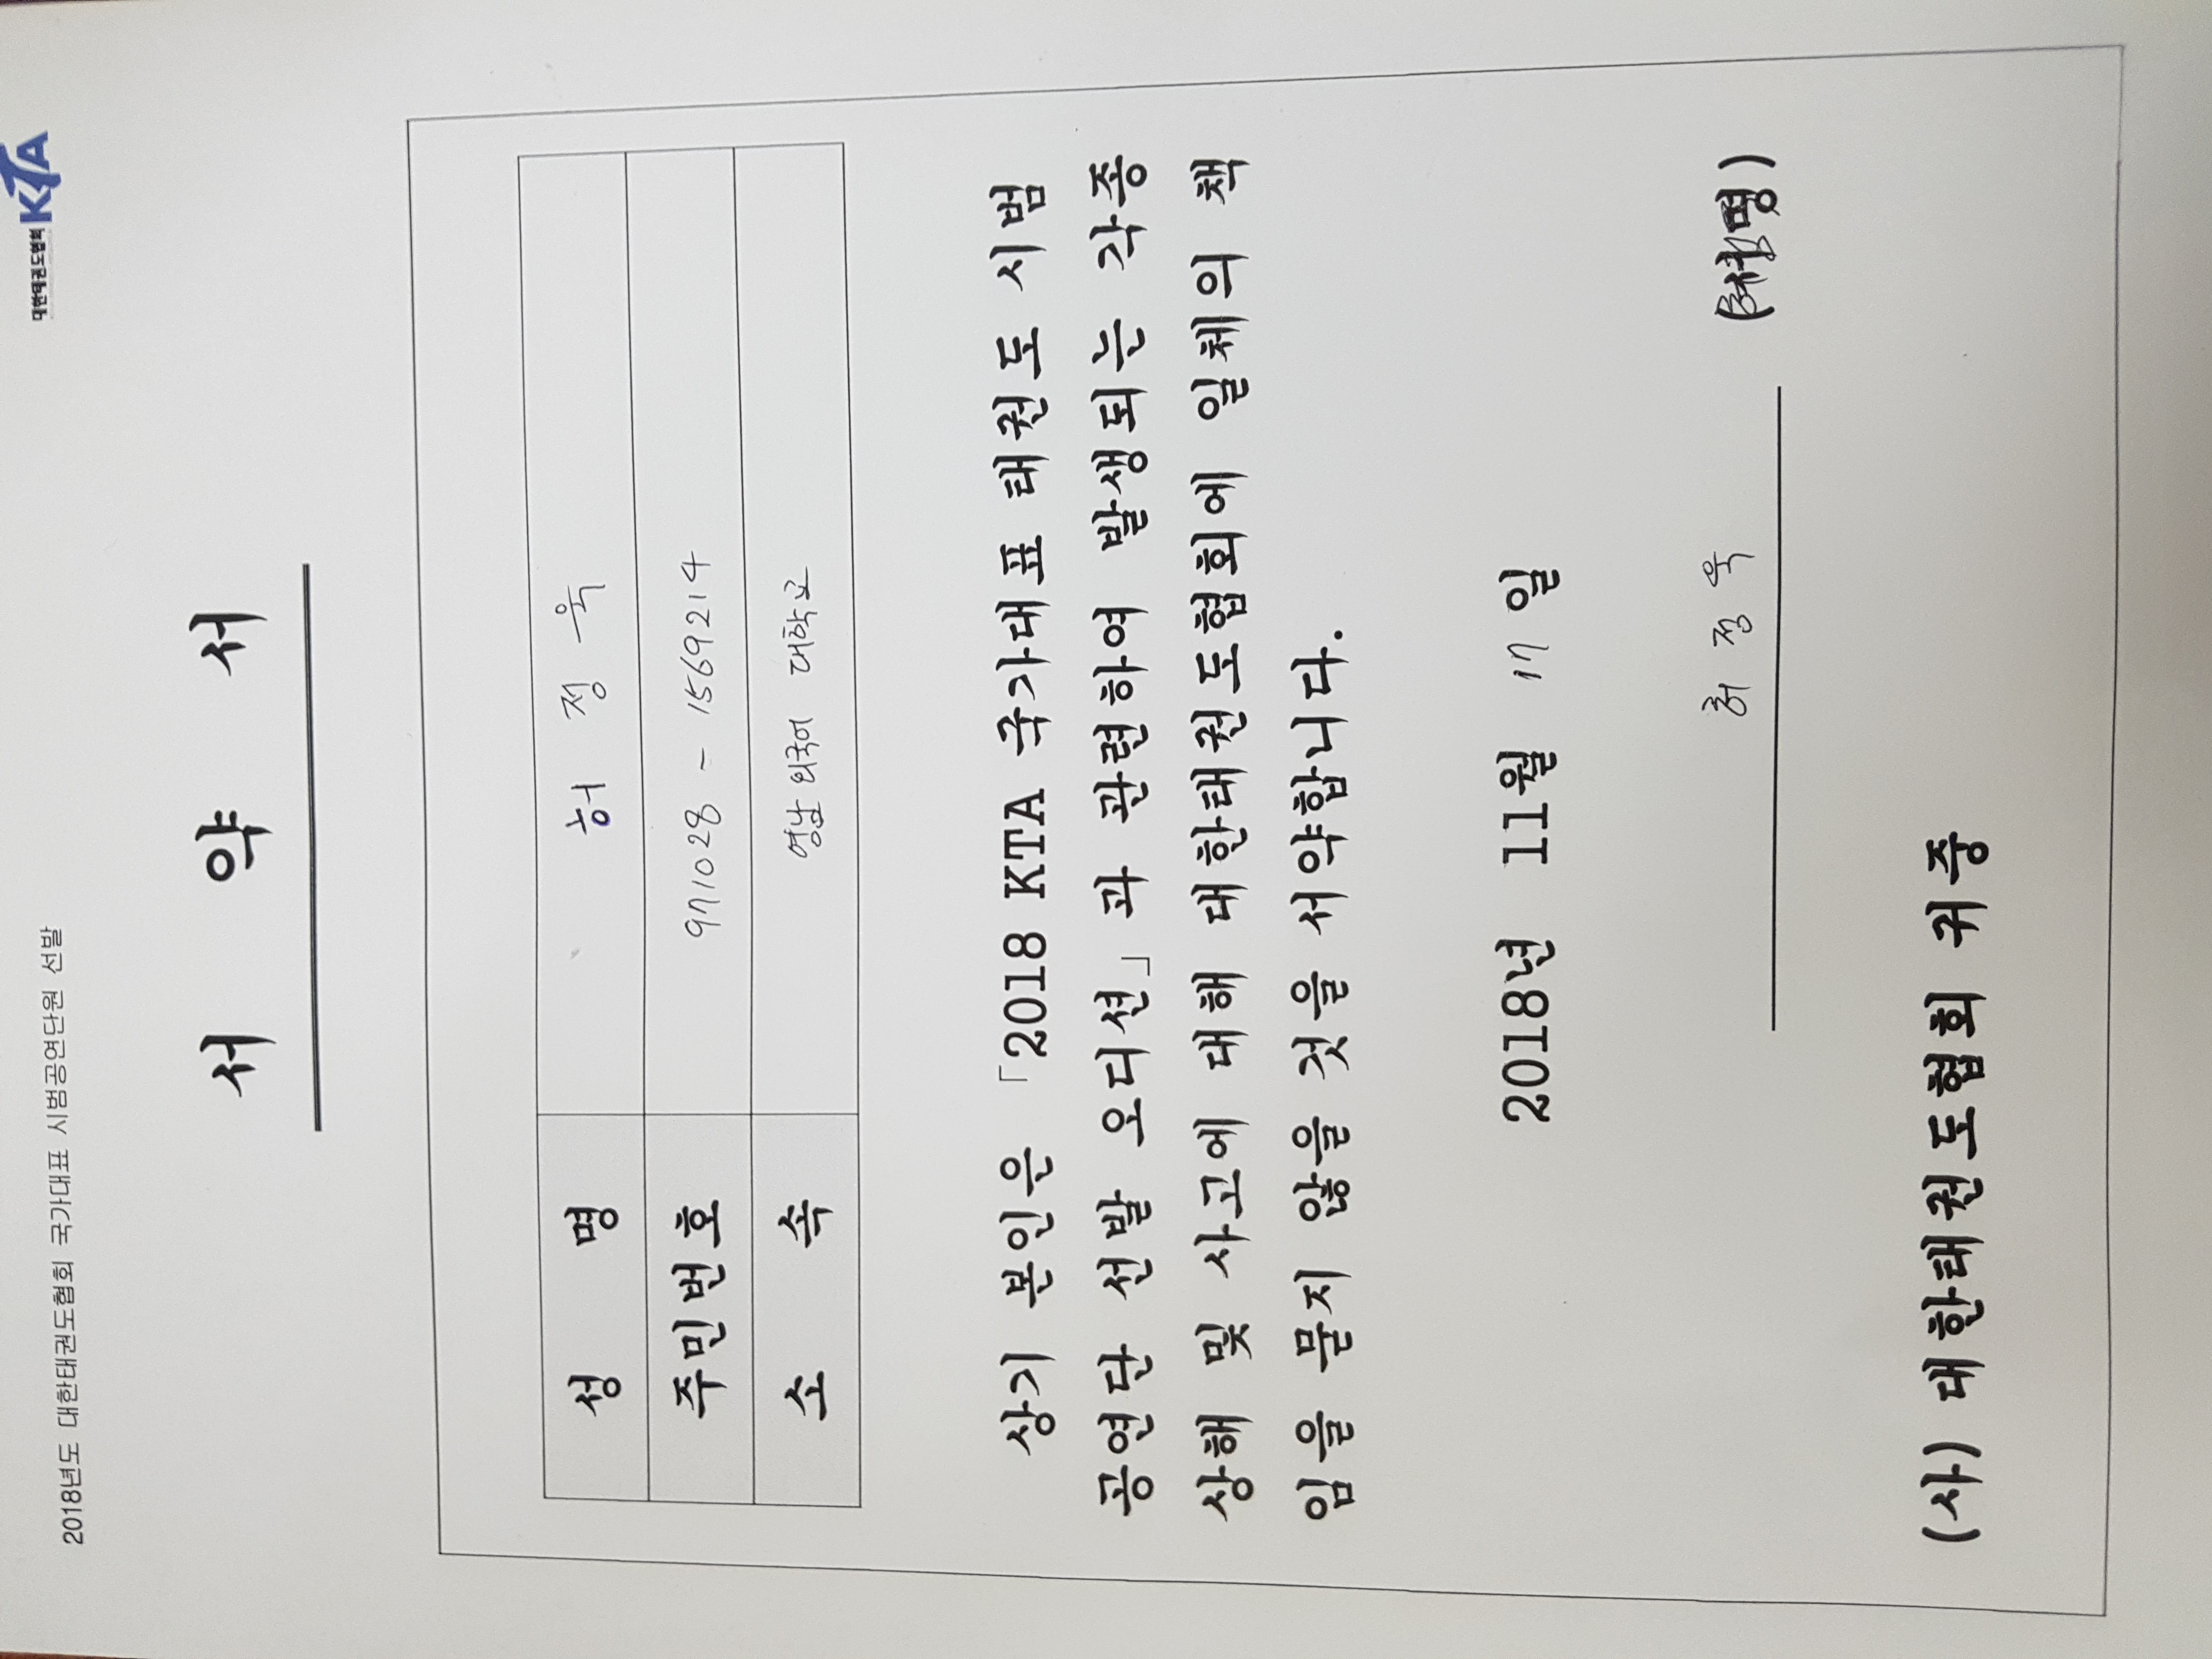 2018년도 대한태권도협회 국가대표 시범공연단원 선발
대한태권도협회 KTA
서 약 서
성 명 허 정 욱
주민번호 971028 - 1569214
소 속 영남 외국어 대학교
상기 본인은 「2018 KTA 국가대표 태권도 시범
공연단 선발 오디션」과 관련하여 발생되는 각종
상해 및 사고에 대해 대한태권도협회에 일체의 책
임을 묻지 않을 것을 서약합니다.
2018년 11월 17일
허 정 욱 (서명)
(사)대한태권도협회 귀중